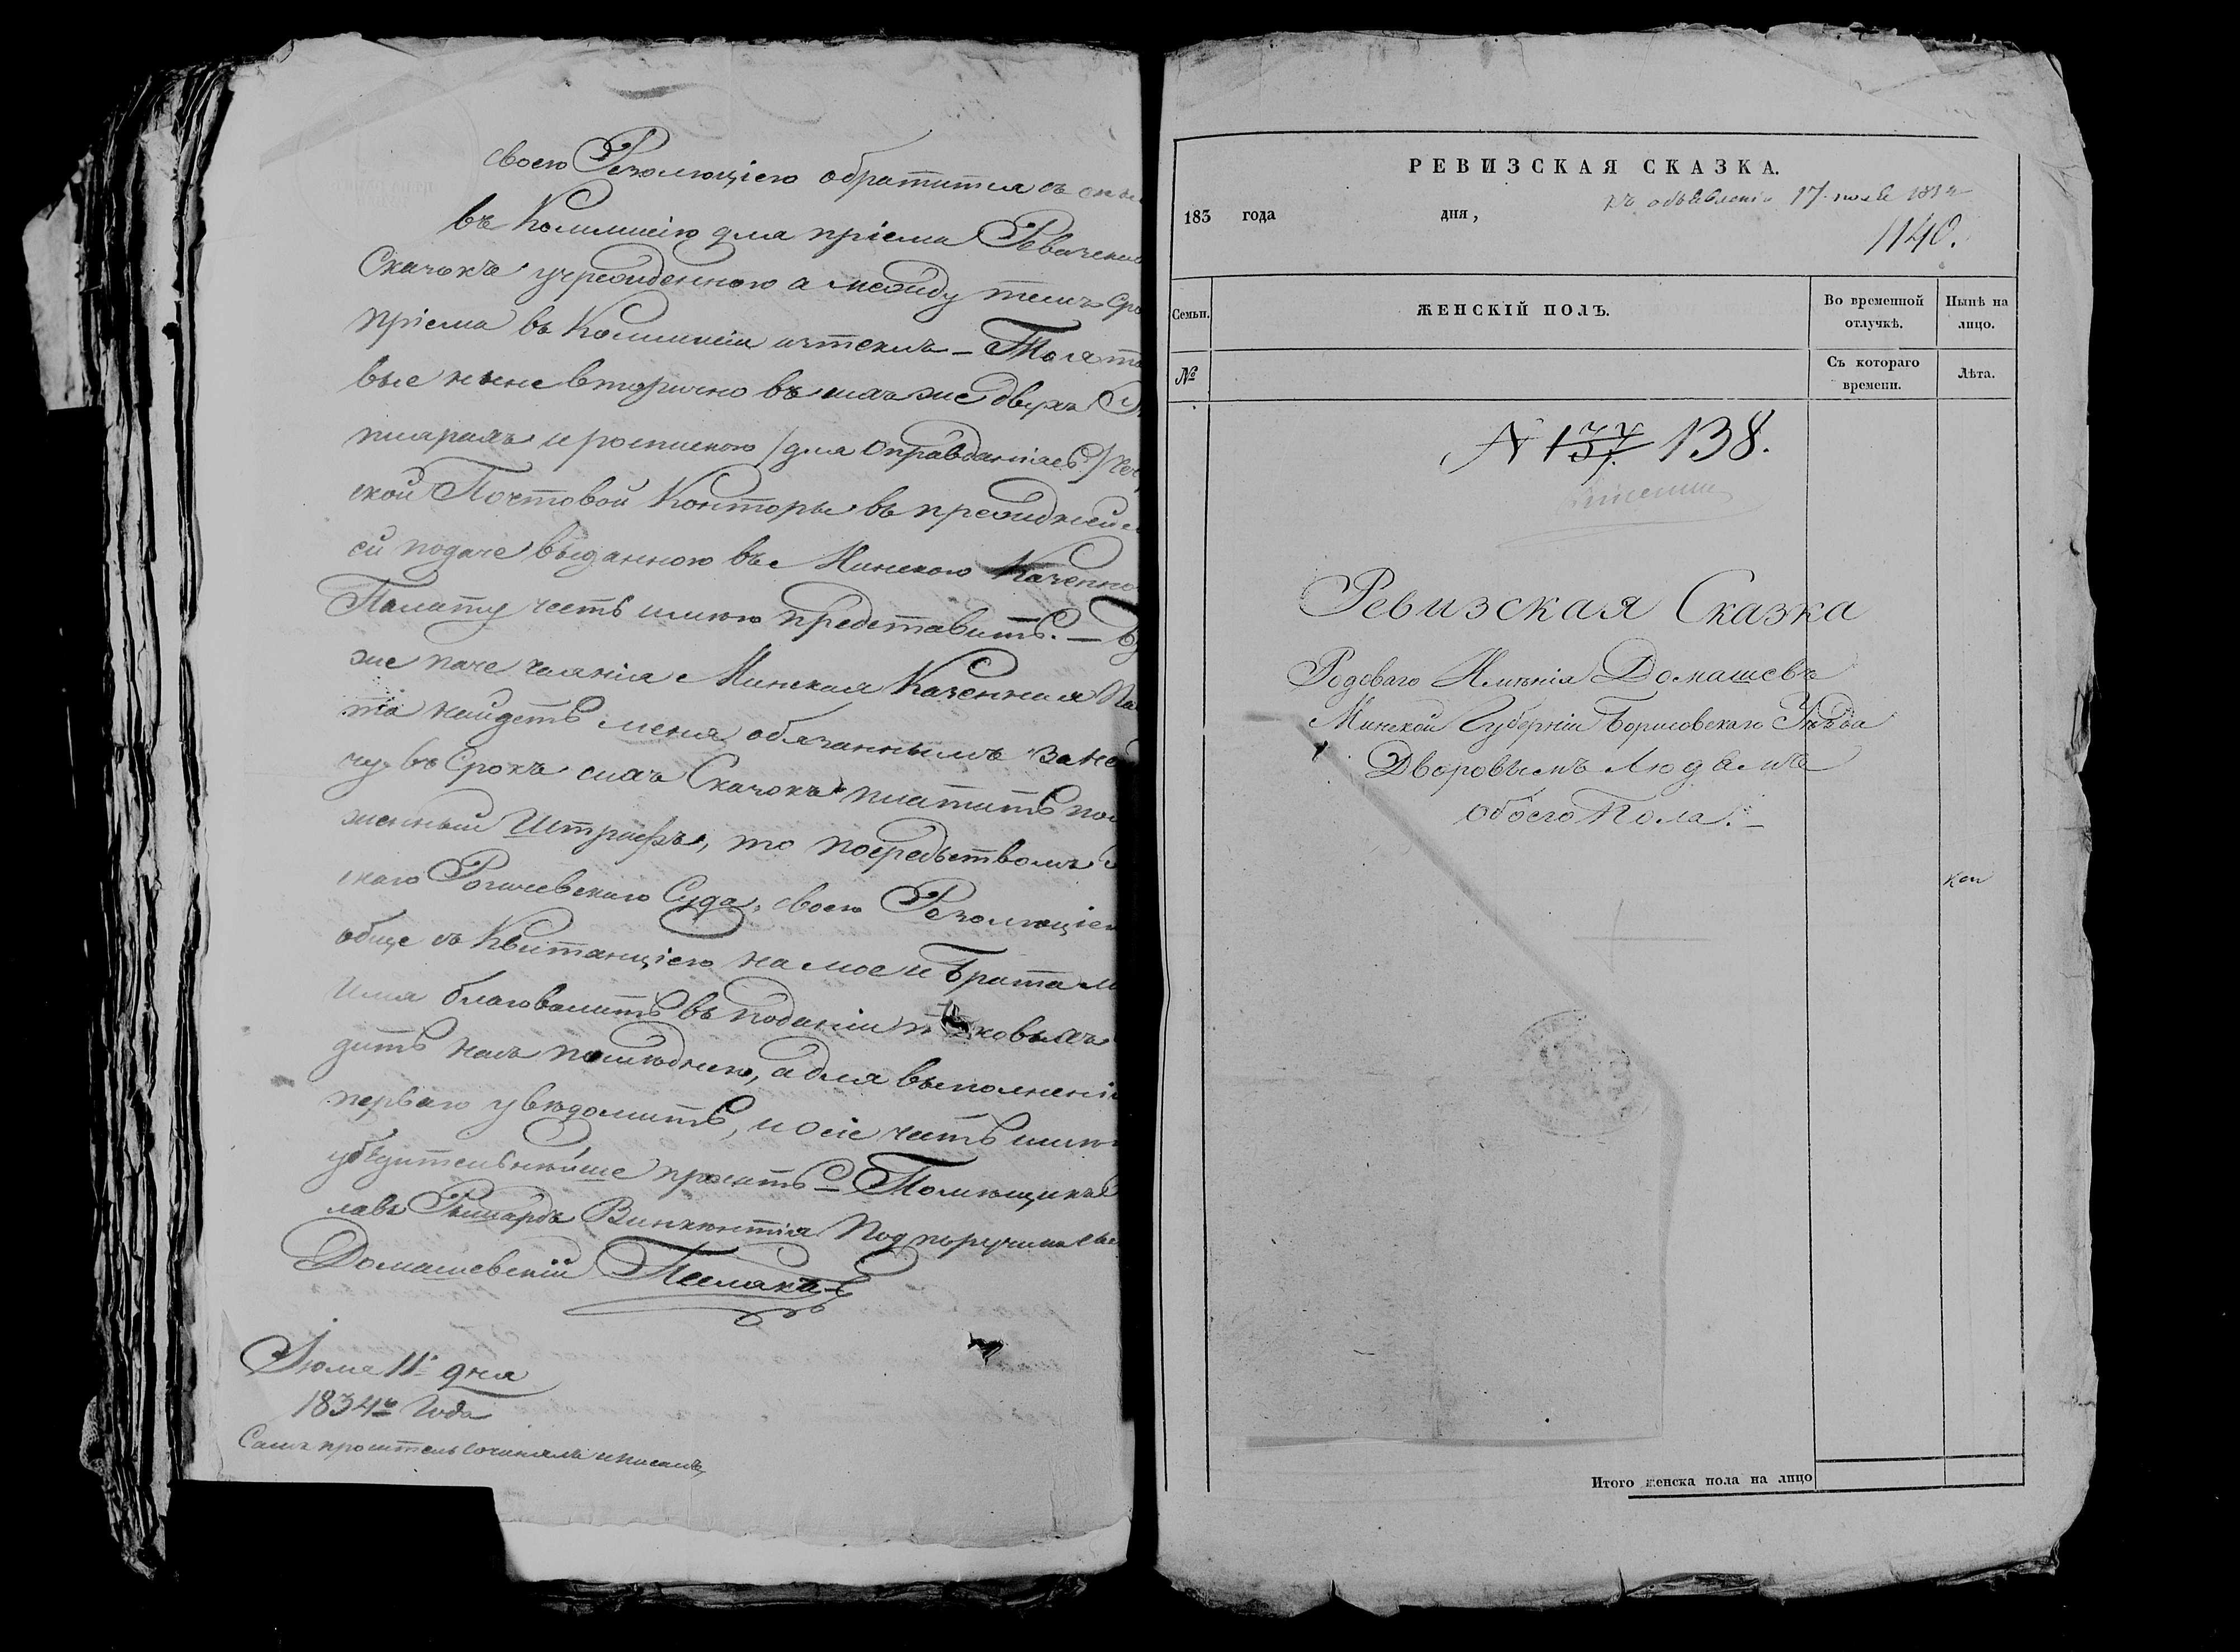 своею Резолюціею обратится съ
въ Коммисію для пріема
Сказокъ учрежденною а между темъ
пріема въ Коммисіи истекъ –
вые ныне вторично въ ихъ же двухъ
плярахъ и роспискою / для оправданія
ской Почтовой Конторы въ прежней
ей подаче выданною въ Минскою Казенно
Палату честь имею представить. –
же паче чаянія Минская Казенная Па
та найдетъ меня обязаннымъ за не
чу въ Срокъ сихъ Сказокъ платить пол
женный Штрафъ, то посредствомъ
скаго Рогачевскаго Суда, своею Резолюціею
обще съ Квитанціею на мое и Брата
имя благоволитъ въ поданіи
дить насъ последнею, а для выполненія
перваго уведомить, о сіе честь имею
убедительнейше просить –
лавъ Рышардъ Винцентія Подпоручика
Домашевскій
Іюля 11 дня
1834го Года
Самъ проситель сочинялъ и писалъ
РЕВИЗСКАЯ СКАЗКА.
183 года дня,
къ объявленію 17 іюля 1834
1140.
Семьи. ЖЕНСКІЙ ПОЛЪ. Во временной отлучкѣ. Нынѣ на лицо.
№ Съ котораго времени. Лѣта.
N 137. 138.
Ревизская Сказка
Родоваго Имѣнія Домашевъ
Минской Губерніи Борисовскаго Уѣзда
Дворовымъ Людямъ
Обоего Пола. –
Итого женска пола на лицо